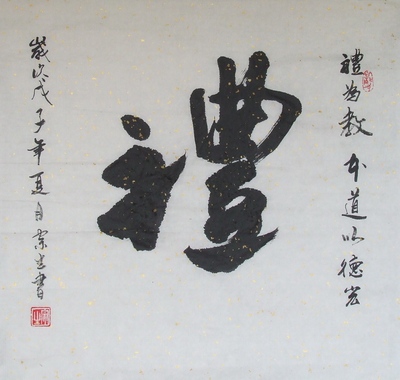 禮為教本道以德宏
禮
歲次戊子年夏月書